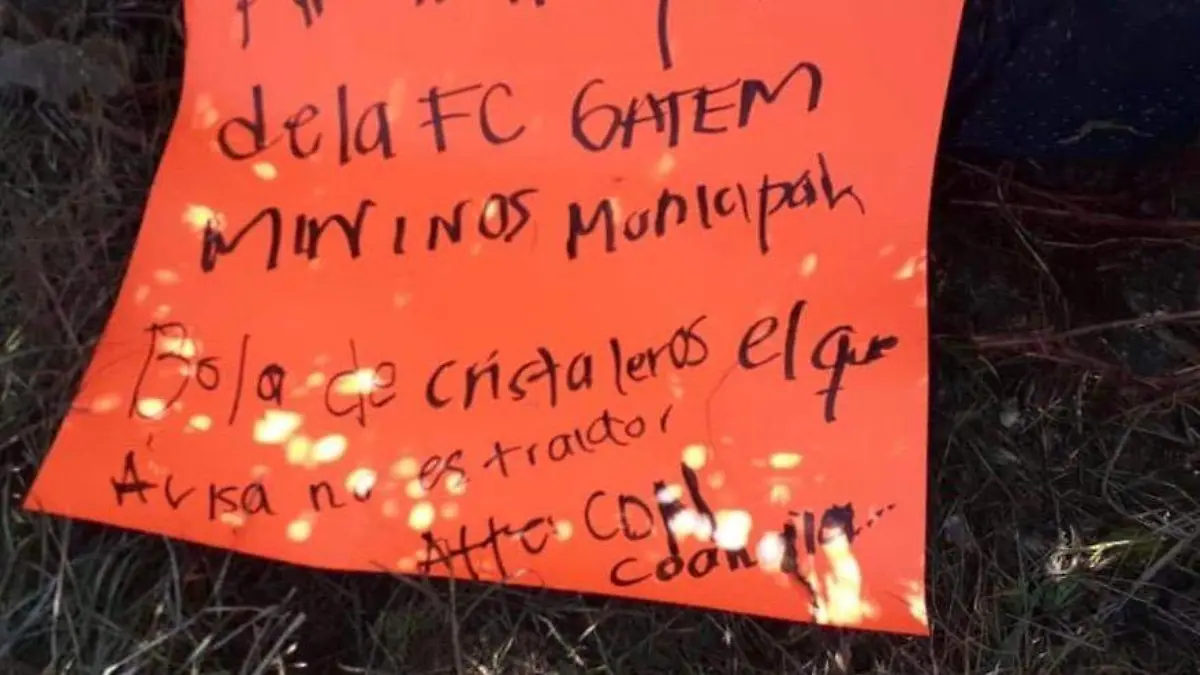 de la FC GATEM
MININOS Municipal
Bola de cristaleros el que
Avisa no es traidor
Atte CDN
Coahuila...